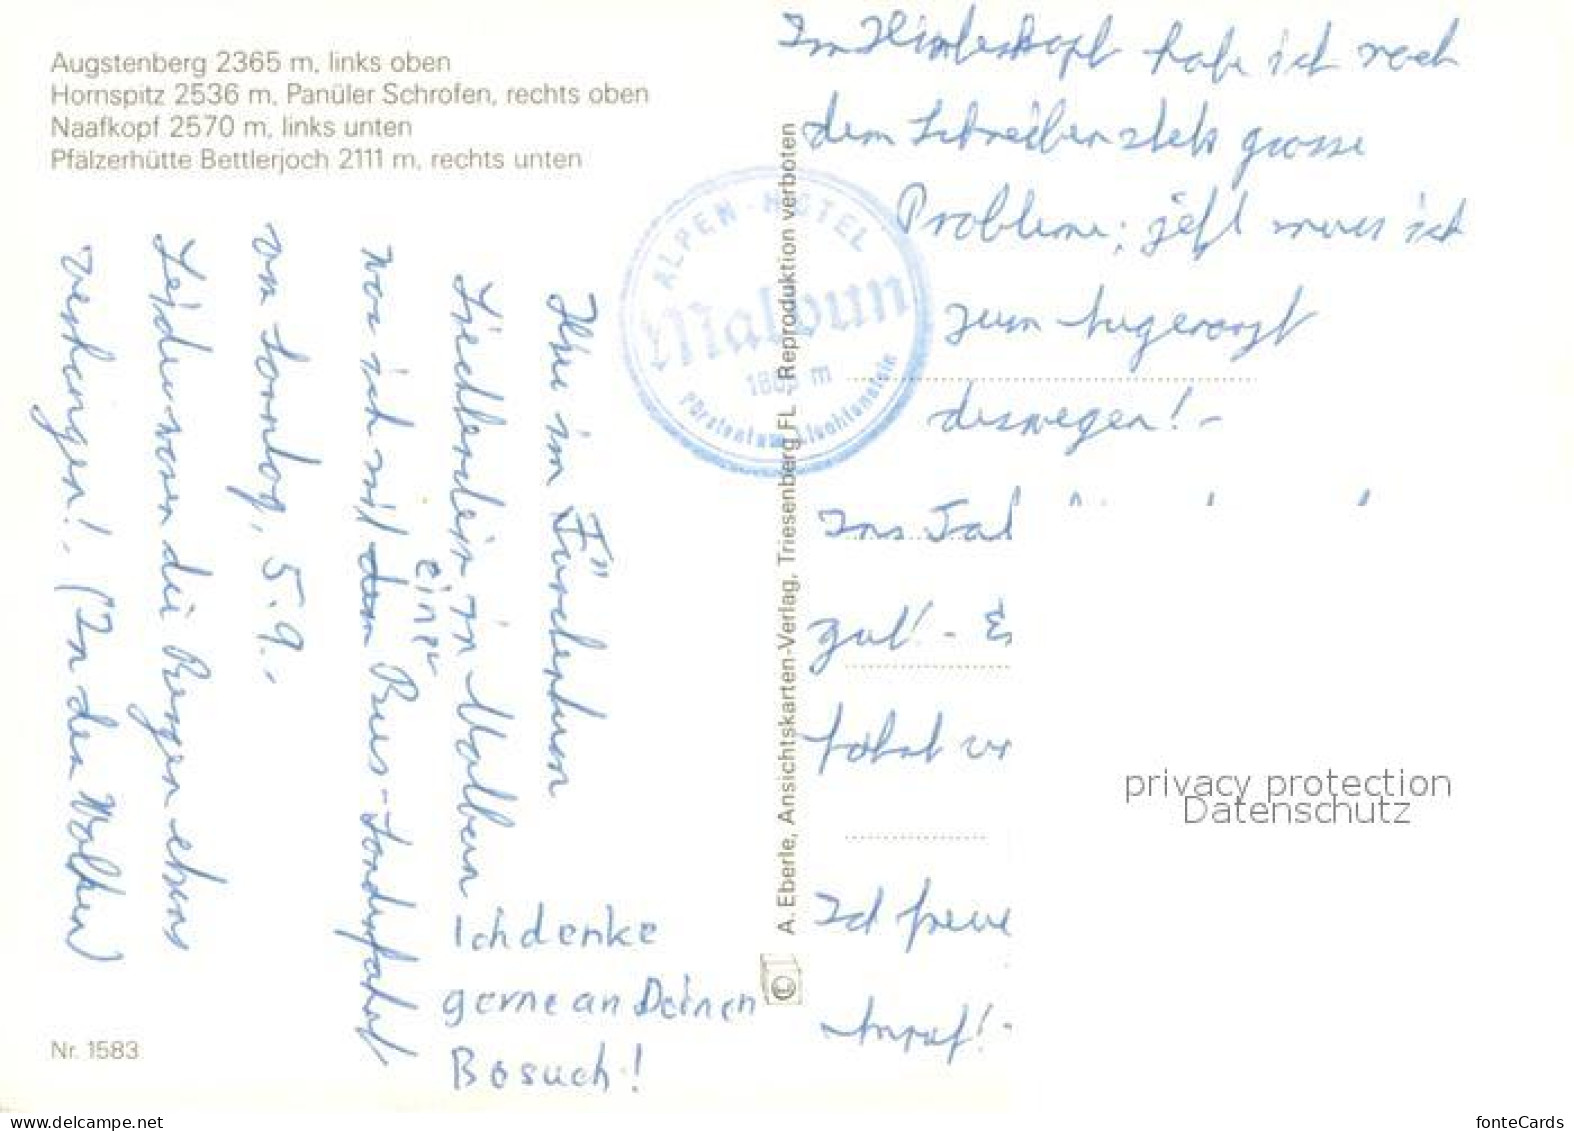 Augstenberg 2365 m, links oben
Hornspitz 2536 m, Panüler Schrofen, rechts oben
Naafkopf 2570 m, links unten
Pfälzerhütte Bettlerjoch 2111 m, rechts unten
Hier im Fürstentum
Liechtenstein in Malbun
war ich mit dem einer Bus-Sonderfahrt
am Sonntag, 5.9.-
Leider waren die Bergen etwas
verhangen! (In den Wolken)
Ich denke
gerne an Deinen
Besuch!
Nr. 1583
ALPEN-HOTEL
Malbun
m
Fürstentum Liechtenstein
A. Eberle, Ansichtskarten-Verlag, Triesenberg FL - Reproduktion verboten
Im Hinterkopf habe ich nach
dem Schreiben stets grosse
Probleme; jetzt muss ich
zum Augenarzt
deswegen! -
Ins Tal
gut! - Es
fahrt
Ich freue
Anruf! -
privacy protection
Datenschutz
www.delcampe.net
fonteCards